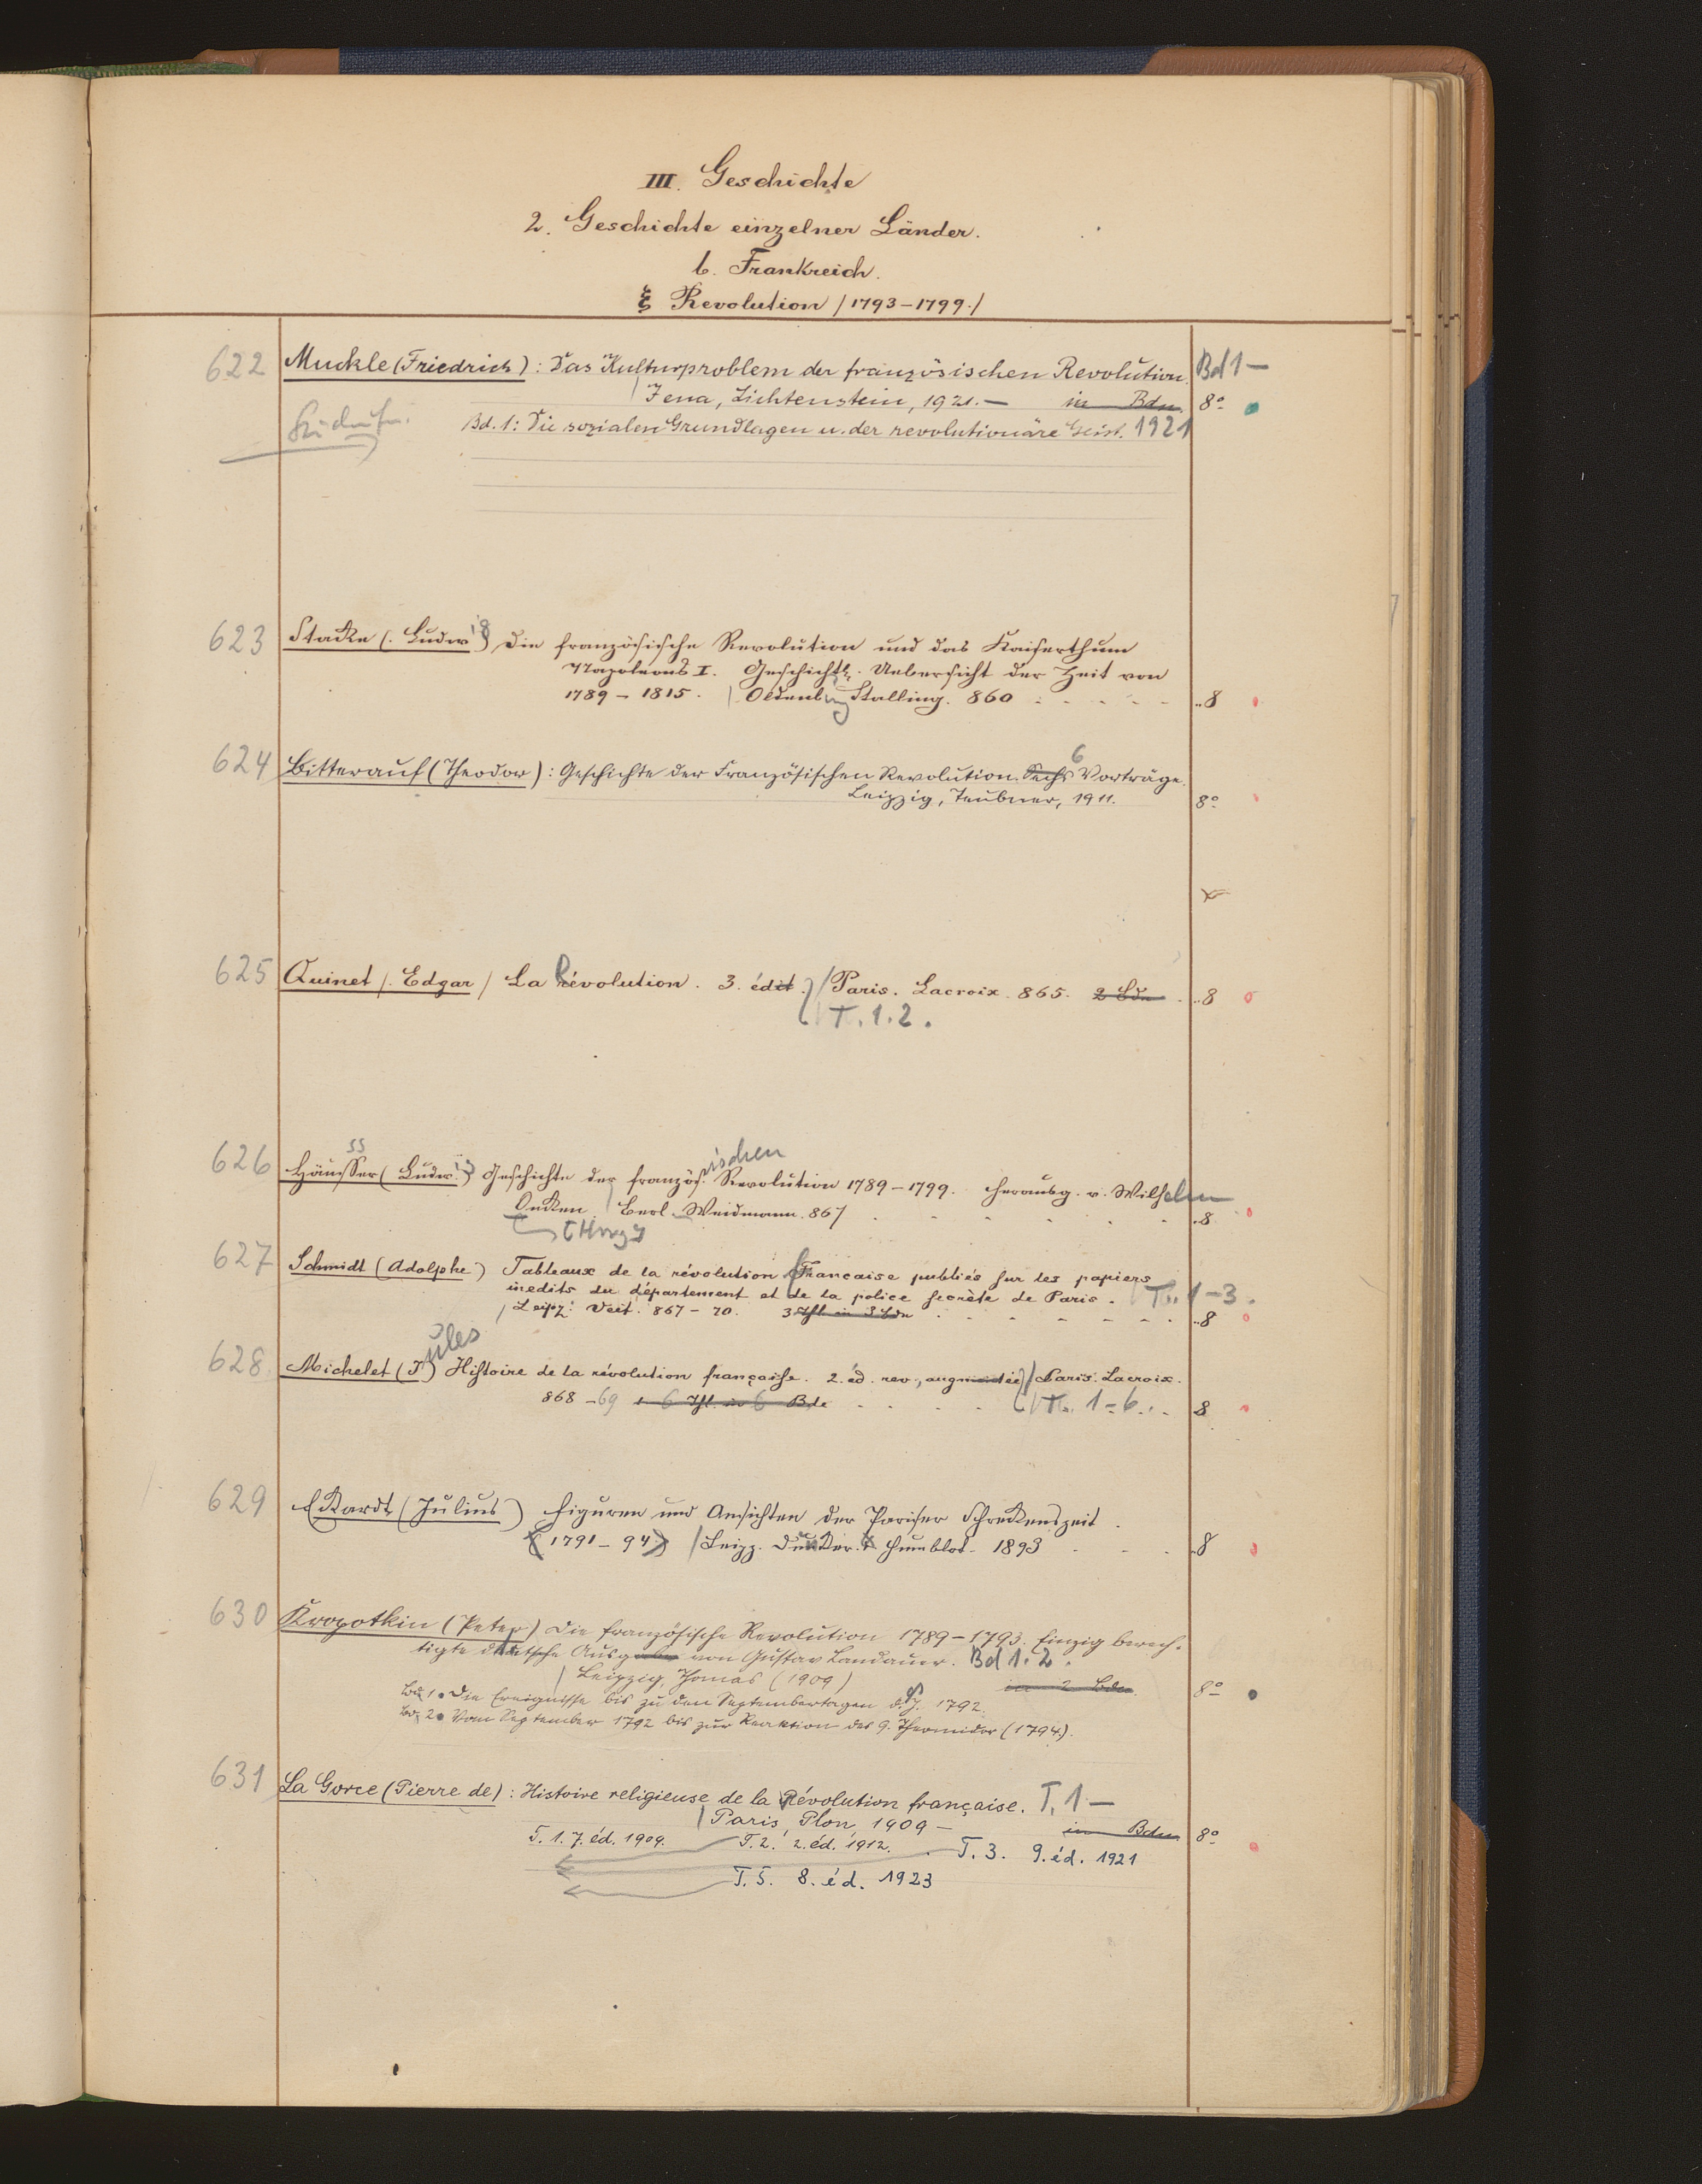 III. Geschichte
2. Geschichte einzelner Länder.
b. Frankreich.
ξ Revolution /1793-1799./
622 Muckle (Friedrich): Das Kulturproblem der französischen Revolution. Bd 1 —
Jena, Lichtenstein, 1921.— in Bdn. 8º
Bd. 1: Die sozialen Grundlagen u. der revolutionäre Geist. 1921
623 Stacke (. Ludwig) Die französische Revolution und das Kaiserthum
Napoleons I. Geschichtl. Uebersicht der Zeit von
1789 - 1815. Oldenbug Stalling. 860 8
624 Bitterauf (Theodor): Geschichte der Französischen Revolution. Sechs 6 Vorträge.
Leipzig, Teubner, 1911. 8º
625 Quinet /. Edgar / La Révolution. 3. édit.) / Paris. Lacroix. 865. 2 Bde 8
T. 1. 2.
626 Häusser (Ludwig) Geschichte der französischen Revolution 1789-1799. Herausg. v. Wilhelm
ss
Oncken Berl. Weidmann. 867 8
627 Schmidt (Adolphe) Tableaux de la révolution Francaise publiés sur les papiers
inedits du département et de la police secrète de Paris. T. 1-3.
Leipz: Veit. 867-70. 3 Thl. in 3 Bdn 8
628 Michelet (Jules) Histoire de la révolution française. 2. éd. rev., augmentée) / Paris. Lacroix.
868 -69 6 Thl. in 6 Bde T. 1-6. 8
629 Eckardt (Julius) Figuren und Ansichten der Pariser Schreckenszeit.
(1791-94) / Leipz. Duncker & Humblot. 1893 8
630 Kropotkin (Peter) Die französische Revolution 1789-1793. Einzig berech-
tigte deutsche Ausgabe von Gustav Landauer. Bd 1. 2.
Leipzig, Thomas (1909) in 2 Bdn. 8º
Bd. 1. Die Ereignisse bis zu den Septembertagen d. J. 1792.
Bd. 2. Vom September 1792 bis zur Reaktion des 9. Thermidor (1794).
631 La Gorce (Pierre de): Histoire religieuse de la Révolution française. T. 1 —
Paris, Plon, 1909 — in Bdn 8º
T. 1. 7. éd. 1909. T. 2. 2. éd. 1912. T. 3. 9. éd. 1921
T. 5. 8. éd. 1923